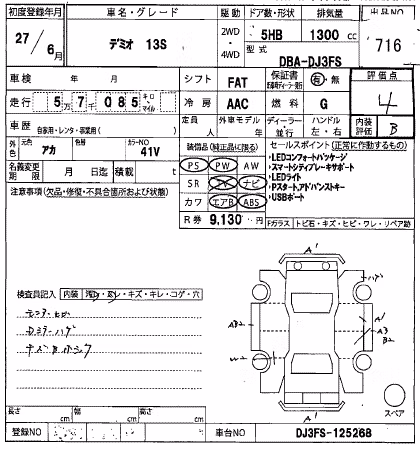 初度登録年月 車名・グレード 駆動 ドア数・形状 排気量 出品NO
27 / 6月 デミオ 13S 2WD・4WD 5HB 1300 cc 716
型式 DBA-DJ3FS
車検 年 月 シフト FAT 保証書 有・無 評価点
走行 5万7千085 キロ・マイル 冷房 AAC 燃料 G 4
車歴 自家用・レンタ・事業用( ) 定員 人 外車モデル 年 ディーラー・並行 ハンドル 左・右 内装評価 B
外色 元色 アカ 色替 カラーNO 41V 装備品(純正品に限る) セールスポイント(正常に作動するもの)
名義変更期限 月 日迄 積載 t PS PW AW
・LEDコンフォートパッケージ
・スマートシティブレーキサポート
・LEDライト
・Pスタート,アドバンストキー
・USBポート
注意事項(欠品・修復・不具合箇所および状態) SR TV ナビ
カワ エアB ABS
R券 9,130円
Fガラス トビ石・キズ・ヒビ・ワレ・リペア跡
検査員記入 内装 ・キズ・キレ・コゲ・穴
Dミラーハゲ
A1
ハゲ
AB2
A1
A3
B2
W2
A1
スペア
長さ cm 幅 cm 高さ cm
登録NO 車台NO DJ3FS-125268